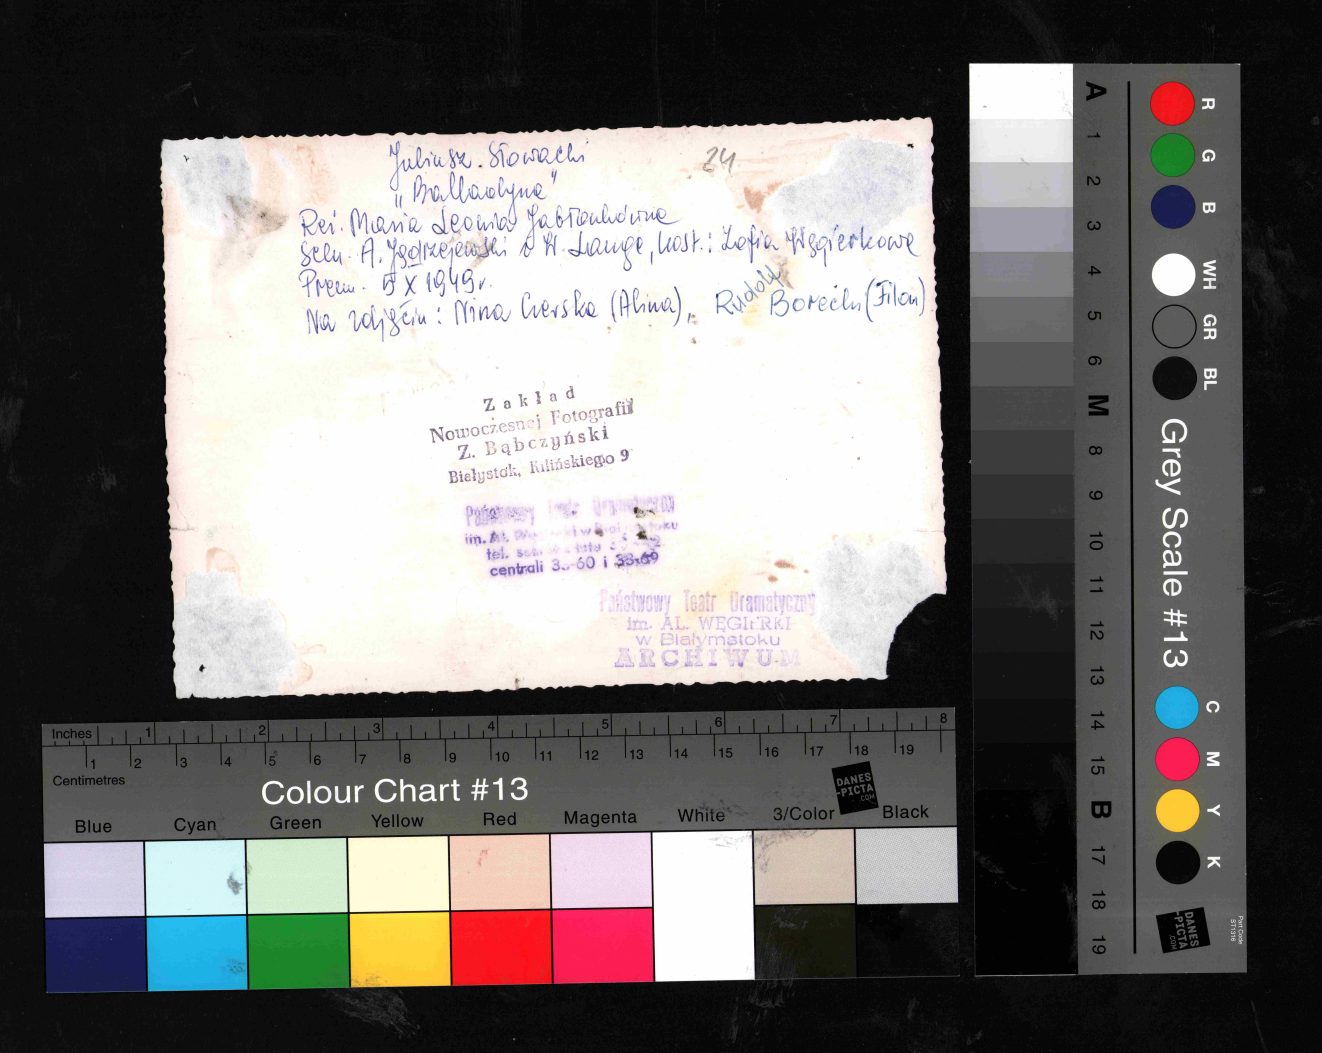 24
Juliusz Słowacki
„Balladyna"
Reż. Maria Leonia Jabłonkówna
Scen. A. Jędrzejewski i W. Lange, kost.: Zofia Węgierkowa
Prem. 5 X 1949 r.
Na zdjęciu: Nina Czerska (Alina), Rudolf Borecki (Filon)
Zakład
Nowoczesnej Fotografii
Z. Bąbczyński
Białystok, Kilińskiego 9
Państwowy Teatr Dramatyczny
im. Al.
tel.
centrali 33-60 i 33-69
Państwowy Teatr Dramatyczny
im. AL. WĘGIERKI
w Białymstoku
ARCHIWUM
Inches 1 2 3 4 5 6 7 8
1 2 3 4 5 6 7 8 9 10 11 12 13 14 15 16 17 18 19
Centimetres
Colour Chart #13
DANES
-PICTA
.COM
Blue Cyan Green Yellow Red Magenta White 3/Color Black
A 1 2 3 4 5 6 M 8 9 10 11 12 13 14 15 B 17 18 19
R G B WH GR BL
Grey Scale #13
C M Y K
DANES
-PICTA
.COM
Part Code
ST1316